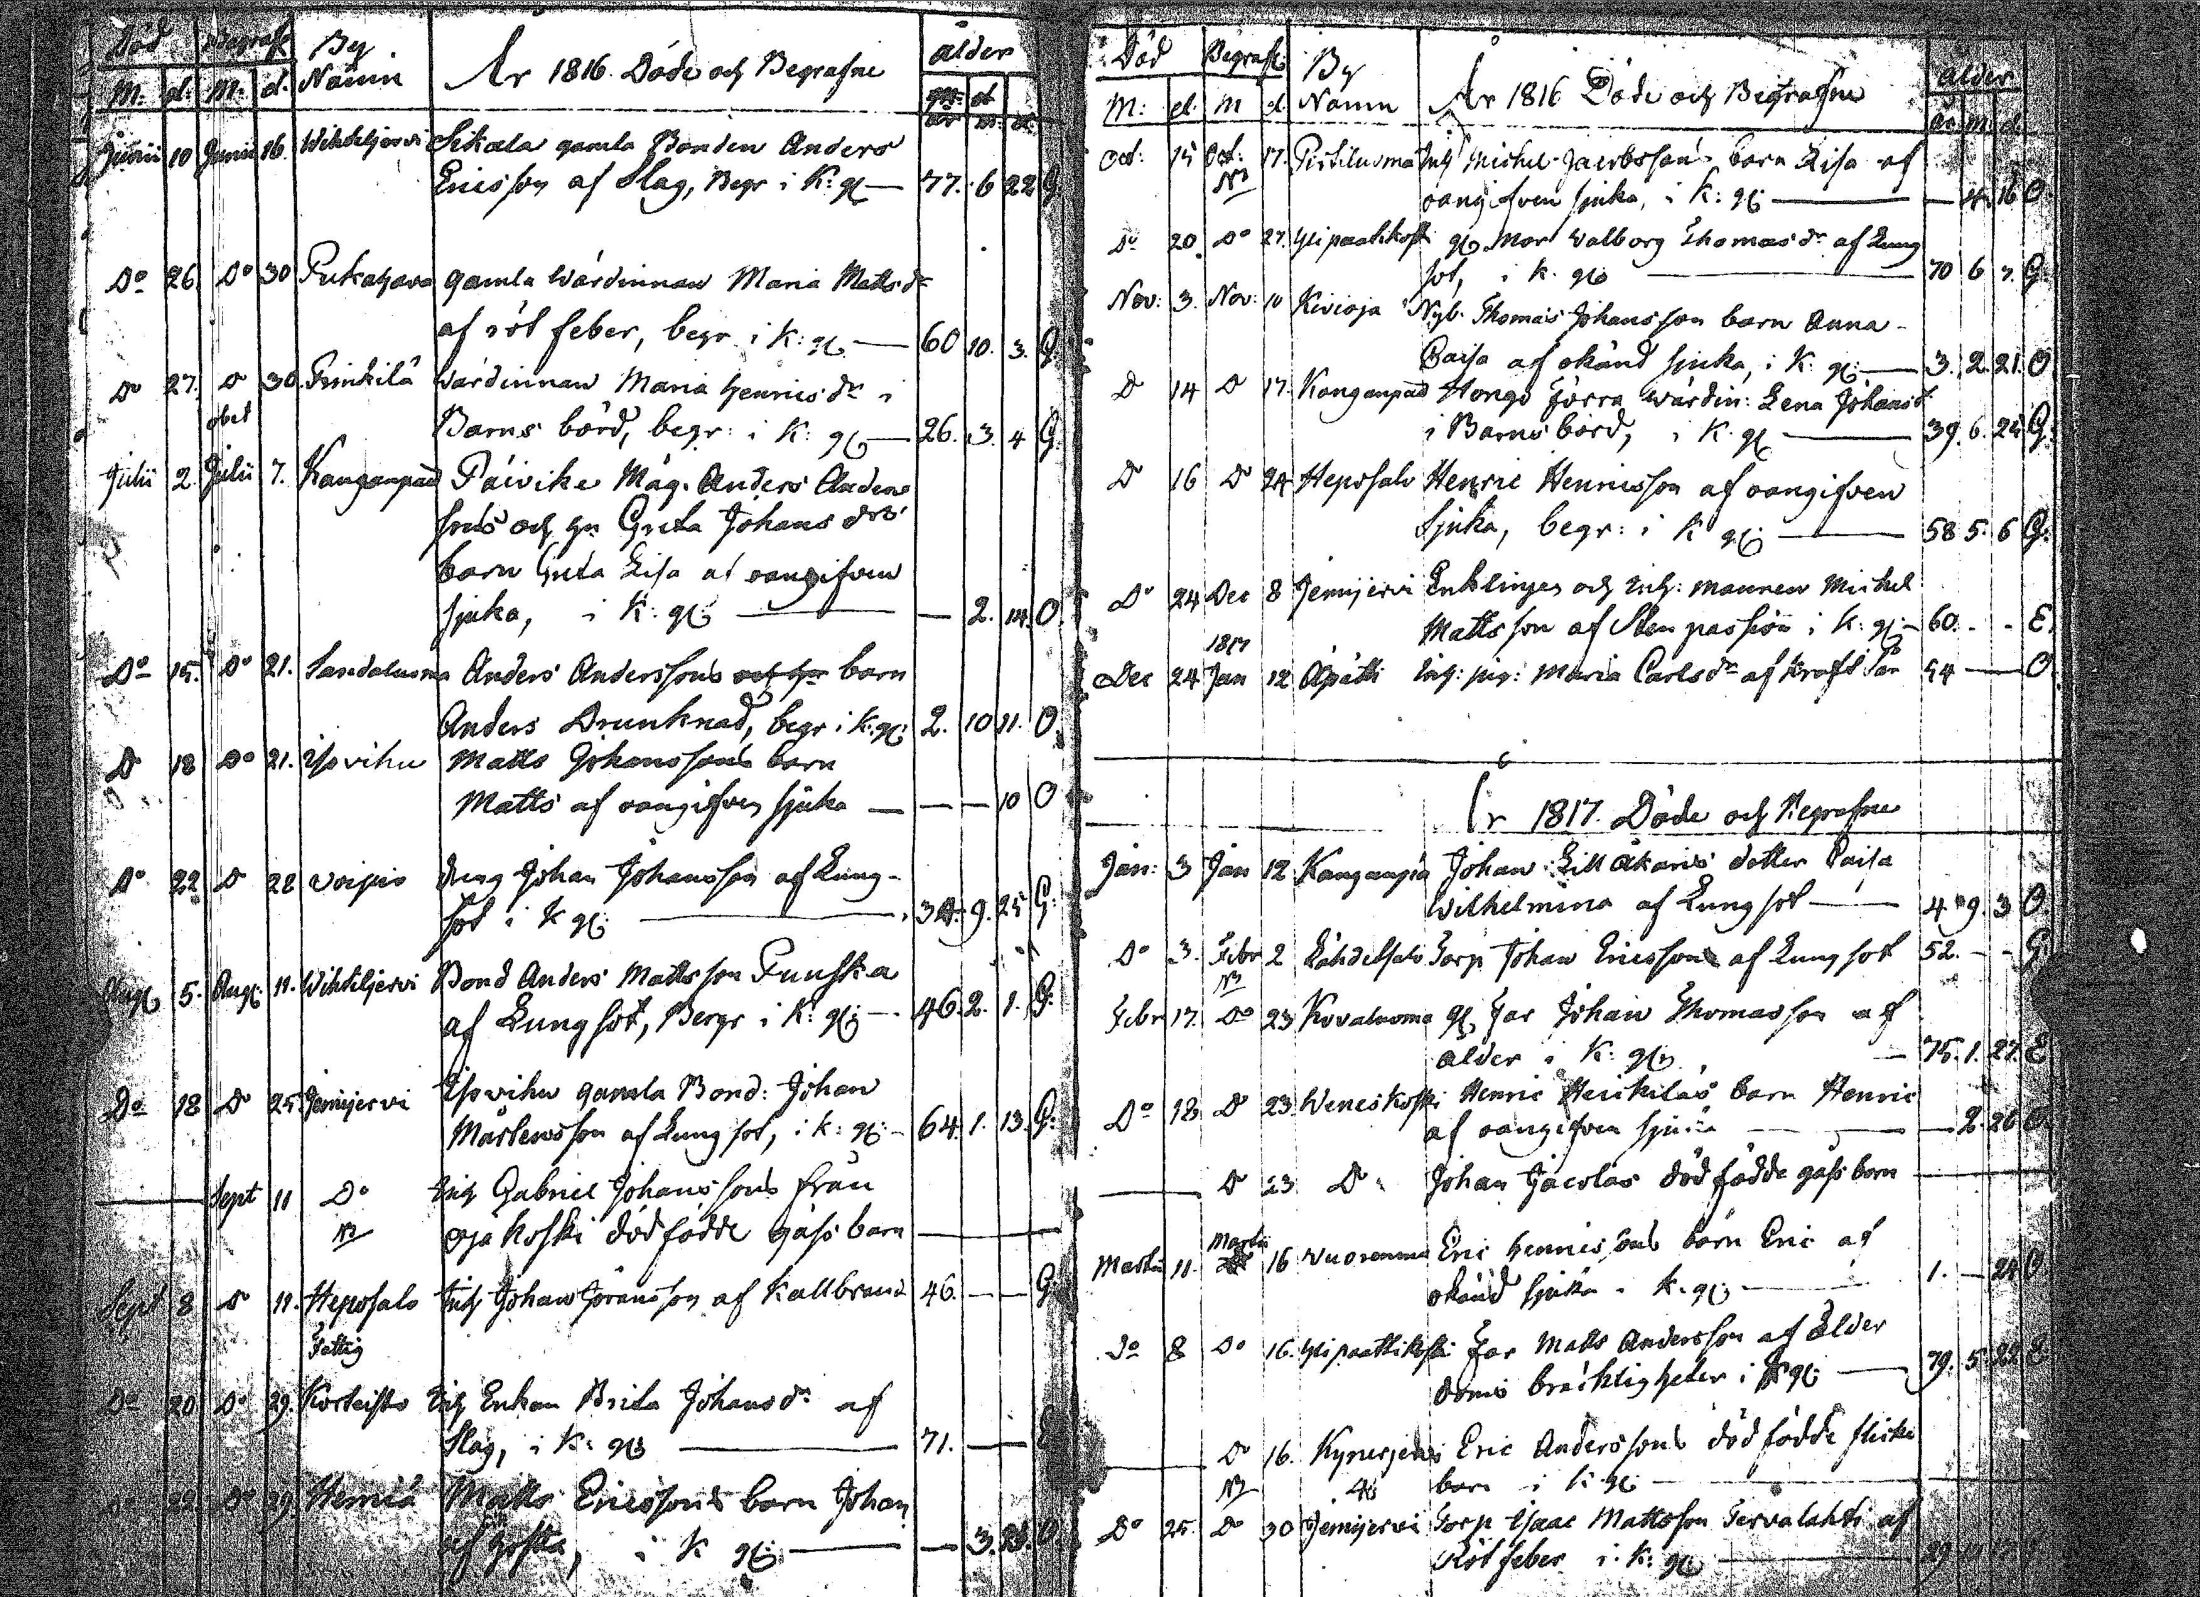 Död Begrafn By Namn År 1816 Döde och Begrafne ålder
M: d: M: d. år m. d.
Junii 10 Junii 16. Wihteljervi Sikala gamla Bonden Anders
Ericsson af Slag, Begr i K: gg 77. 6 22 G.
Do 26. Do 30 Pukahava gamla Wärdinnan Maria Mattsdr
af röt feber, begr i K: gg 60 10. 3. G.
Do 27. D 30. Wärdinnan Maria Henricsdr i
Barns börd, begr: i K: gg 26. 3. 4 G.
Julii 2 Julii 7. Kanganpää Päivike Måg. Anders Anders
sons och hu Greta Johansdrs
barn Greta Lisa af oangifven
sjuka, i K: gg — 2. 14. O.
Do 15. Do 21. Sandaluoma Anders Anderssons barn
Anders Drunknad, begr i K: gg 2. 10 11. O.
D 18 Do 21. Isovihu Matts Johanssons barn
Matts af oangifven sjuka — — 10 O
Do 22 D 28 Voipio Dreng Johan Johansson af Lung-
sot i K gg 9. 25 G.
Aug 5. Aug. 11. Wihteljervi Bond Anders Mattsson Punska
af Lungsot, Begr i K: gg 46. 2. 1. G.
Do 18 D 25 Jemijervi Isovihu gamla Bond: Johan
Mårtensson af Lungsot, i K: gg 64. 1. 13. G.
Sept 11 Do Inh Gabriel Johanssons från
NB Ojakoski dödfödde gåss barn
Sept 8 D 11. Heposalo Inh Johan Göransson af Kallbrand 46. — — G
Fattig
Do 20 Do 29. Korteisto Inh Enkan Brita Johansdr af
Slag, i K: gg 71. — — E
Do 22. Do 29. Hemiä Matts Ericssons barn Johan
af hosta, i K gg — 3. 21. O.
Död Begrafn By Namn År 1816 Döde och Begrafne ålder
M: d. M d. år m. d.
Oct: 15 Oct: 17. Pistiluoma Inh Michel Jacobssons barn Lisa af
NB oangifven sjuka, i K: gg — 4. 16 O.
Do 20 Do 27. Ylipaatikoski gl Mor Walborg Thomasdr af Lung
sot, i K. gg 70 6 7. G.
Nov: 3. Nov: 10 Kivioja Nyb. Thomas Johansson barn Anna-
Caisa af okänd sjuka, i K. gg 3. 2. 21. O
D 14 D 17. Kanganpää Hongo förra Wärdin: Lena Johansd
i Barnsbörd, i K. gg 39. 6. 25 G.
D 16 D 24 Heposalo Henric Henricsson af oangifven
sjuka, begr: i K gg 58 5. 6 G.
Do 24 Dec 8 Jemijervi Enklingen och Inh: mannen Michel
Mattsson af Stenpassion i K: gg 60. - - E.
1817
Dec 24 Jan 12 Äpätti Inh: pig: Maria Carlsdr af Kräftsår 54 — O
År 1817. Döde och Begrafne
Jan: 3 Jan 12 Kanganpää Johan Lill Åkaris dotter Caisa
Wilhelmina af Lungsot 4 9. 3 O.
Do 3. Febr 2 Torp Johan Ericsson af Lungsot 52. - - G.
NB
Febr 17. Do 23 Kovaluoma gl. Far Johan Thomasson af
ålder i K: gg 75. 1. 27. E
Do 18. D 23 Weneskoski Henric Heikiläs barn Henric
af oangifven sjuka — 2. 26 O.
D 23 D Johan Jacolas dödfödde gåss barn
Martii 11. Martii 16 Vuorenmaa Eric Henricssons barn Eric af
okänd sjuka i K. gg 1. — 24 O.
Do 8 Do 16. Ylipaattikoski Far Matts Andersson af Ålder
doms bräckligheter i K gg 79. 5. 22 E
D 16. Kynesjervi Eric Anderssons dödfödde flicke
NB barn i K. gg
Do 25. D 30 Jemijervi Torp Isaac Mattsson Tervalahti af
Rötfeber i K: gg